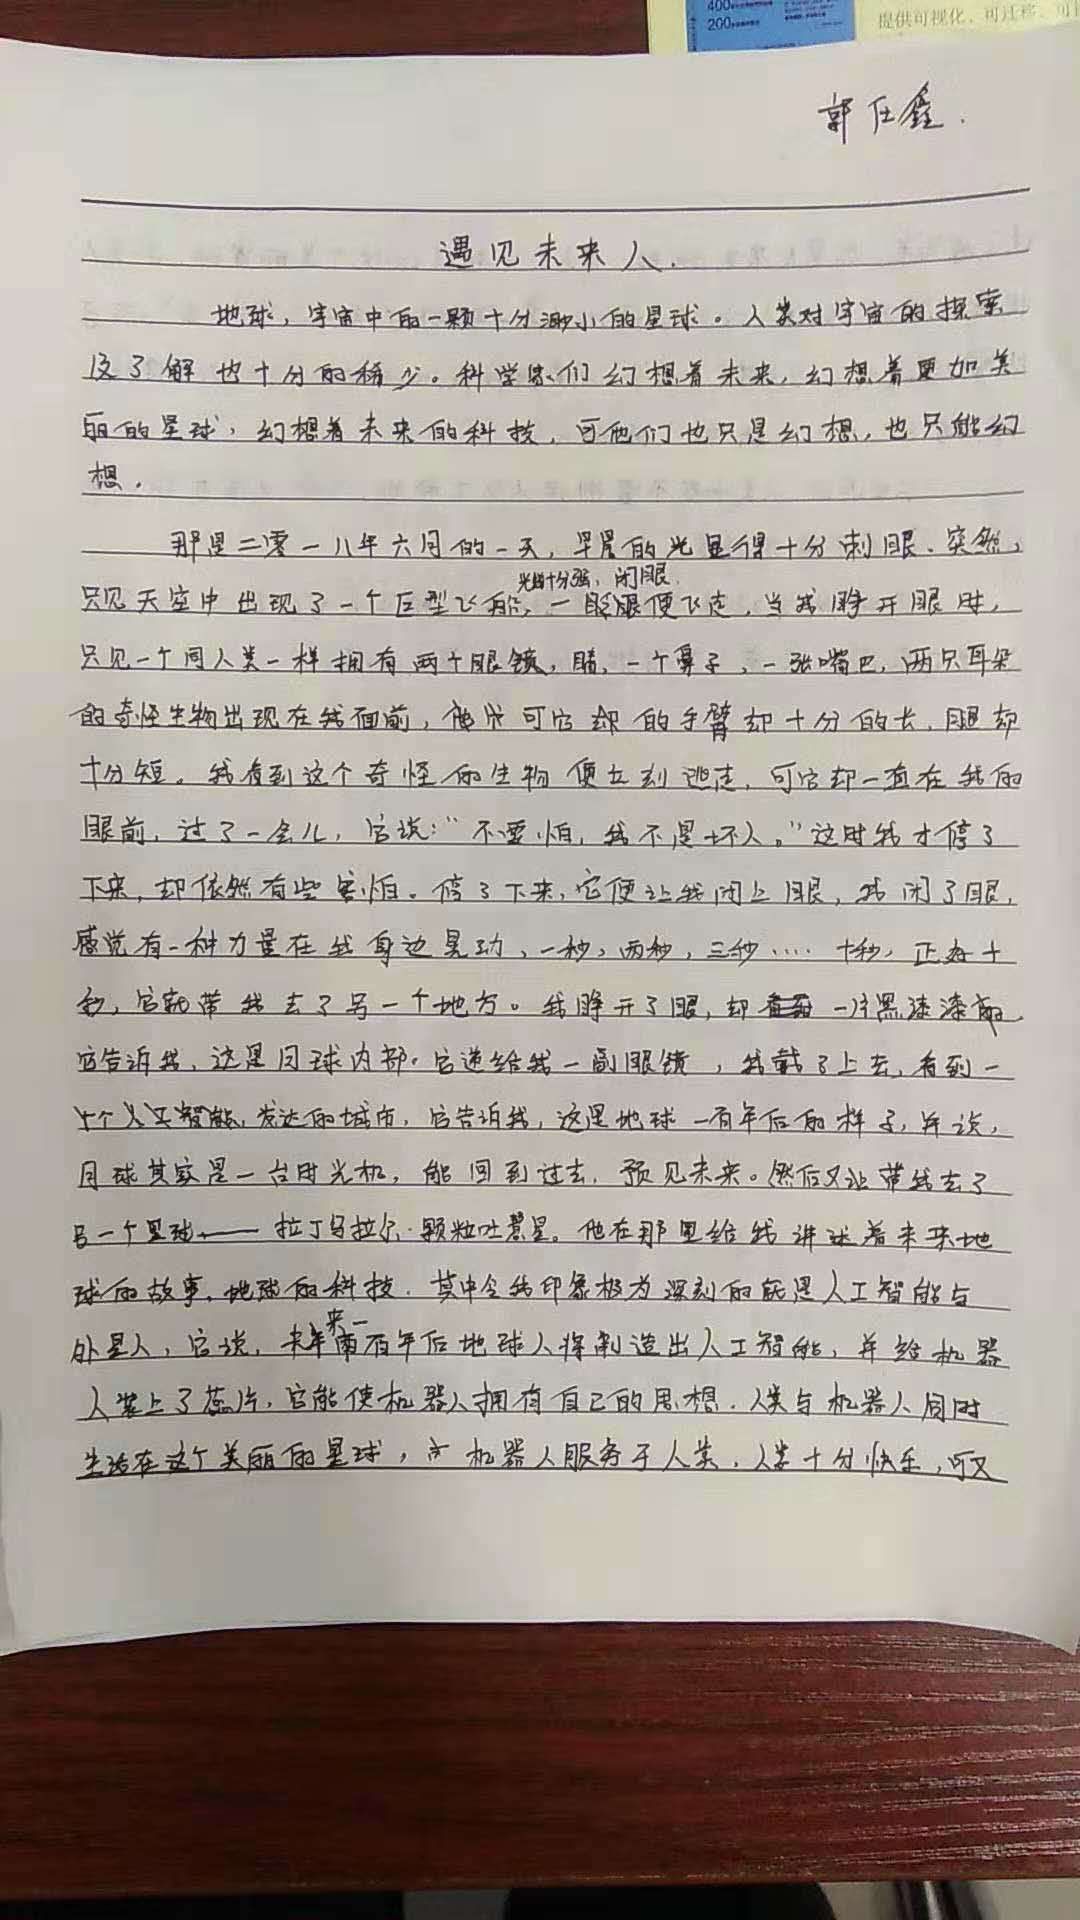 400
200
提供可视化、可迁移、可
郭任鑫.
遇见未来人.
地球，宇宙中的一颗十分渺小的星球。人类对宇宙的探索
及了解也十分的稀少。科学家们幻想着未来，幻想着更加美
丽的星球，幻想着未来的科技，可他们也只是幻想，也只能幻
想.
那是二零一八年六月的一天，早晨的光显得十分刺眼.突然，
光线十分强，闭眼.
只见天空中出现了一个巨型飞船，一眨眼便飞走.当我睁开眼时，
只见一个同人类一样拥有两个眼镜，睛，一个鼻子，一张嘴巴，两只耳朵
的奇怪生物出现在我面前，可它却的手臂却十分的长，腿却
十分短。我看到这个奇怪的生物便立刻逃走，可它却一直在我的
眼前，过了一会儿，它说：“不要怕，我不是坏人。”这时我才停了
下来，却依然有些害怕。停了下来，它便让我闭上眼，我闭了眼，
感觉有一种力量在我身边晃动，一秒，两秒，三秒……十秒，正好十
秒，它就带我去了另一个地方。我睁开了眼，却一片黑漆漆的，
它告诉我，这是月球内部.它递给我一副眼镜，我戴了上去，看到一
个人工智能，发达的城市，它告诉我，这是地球一百年后的样子，并说，
月球其实是一台时光机，能回到过去，预见未来。然后又让带我去了
另一个星球——拉丁马拉尔·颗粒吐慧星。他在那里给我讲述着未来地
球的故事，地球的科技.其中令我印象极为深刻的就是人工智能与
来一
外星人，它说，未年百年后地球人将制造出人工智能，并给机器
人装上了芯片，它能使机器人拥有自己的思想.人类与机器人同时
生活在这个美丽的星球，机器人服务于人类，人类十分快乐，可又